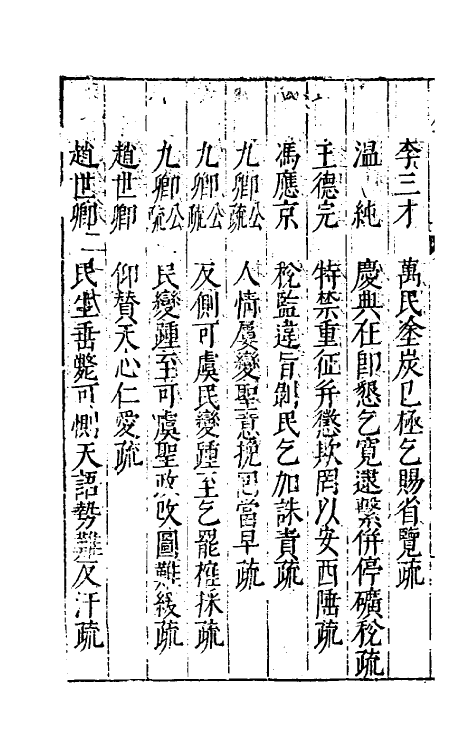 李三才 萬民塗炭已極乞賜省覽疏
温純 慶典在即懇乞寬逮繫併停礦稅疏
王德完 特禁重征并懲欺罔以安西陲疏
馮應京 稅監違旨剝民乞加誅責疏
九卿公疏 人情屢變聖意挽回當早疏
九卿公疏 反側可虞民變踵至乞罷榷採疏
九卿公疏 民變踵至可虞聖政改圖難緩疏
趙世卿 仰賛天心仁愛疏
趙世卿二 民生垂斃可惻天語勢難反汗疏